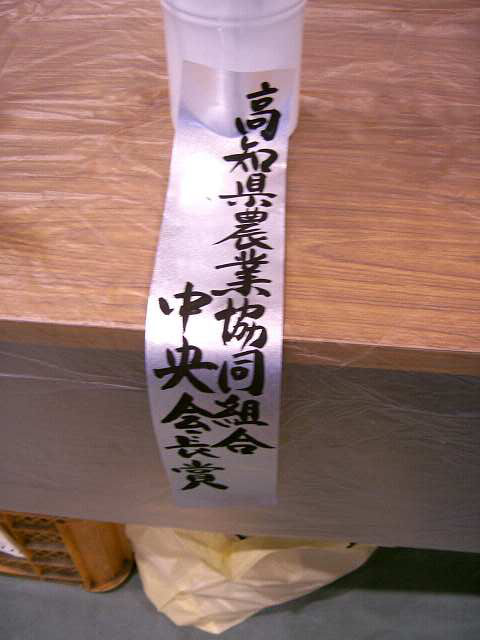 高知県農業協同組合
中央会長賞